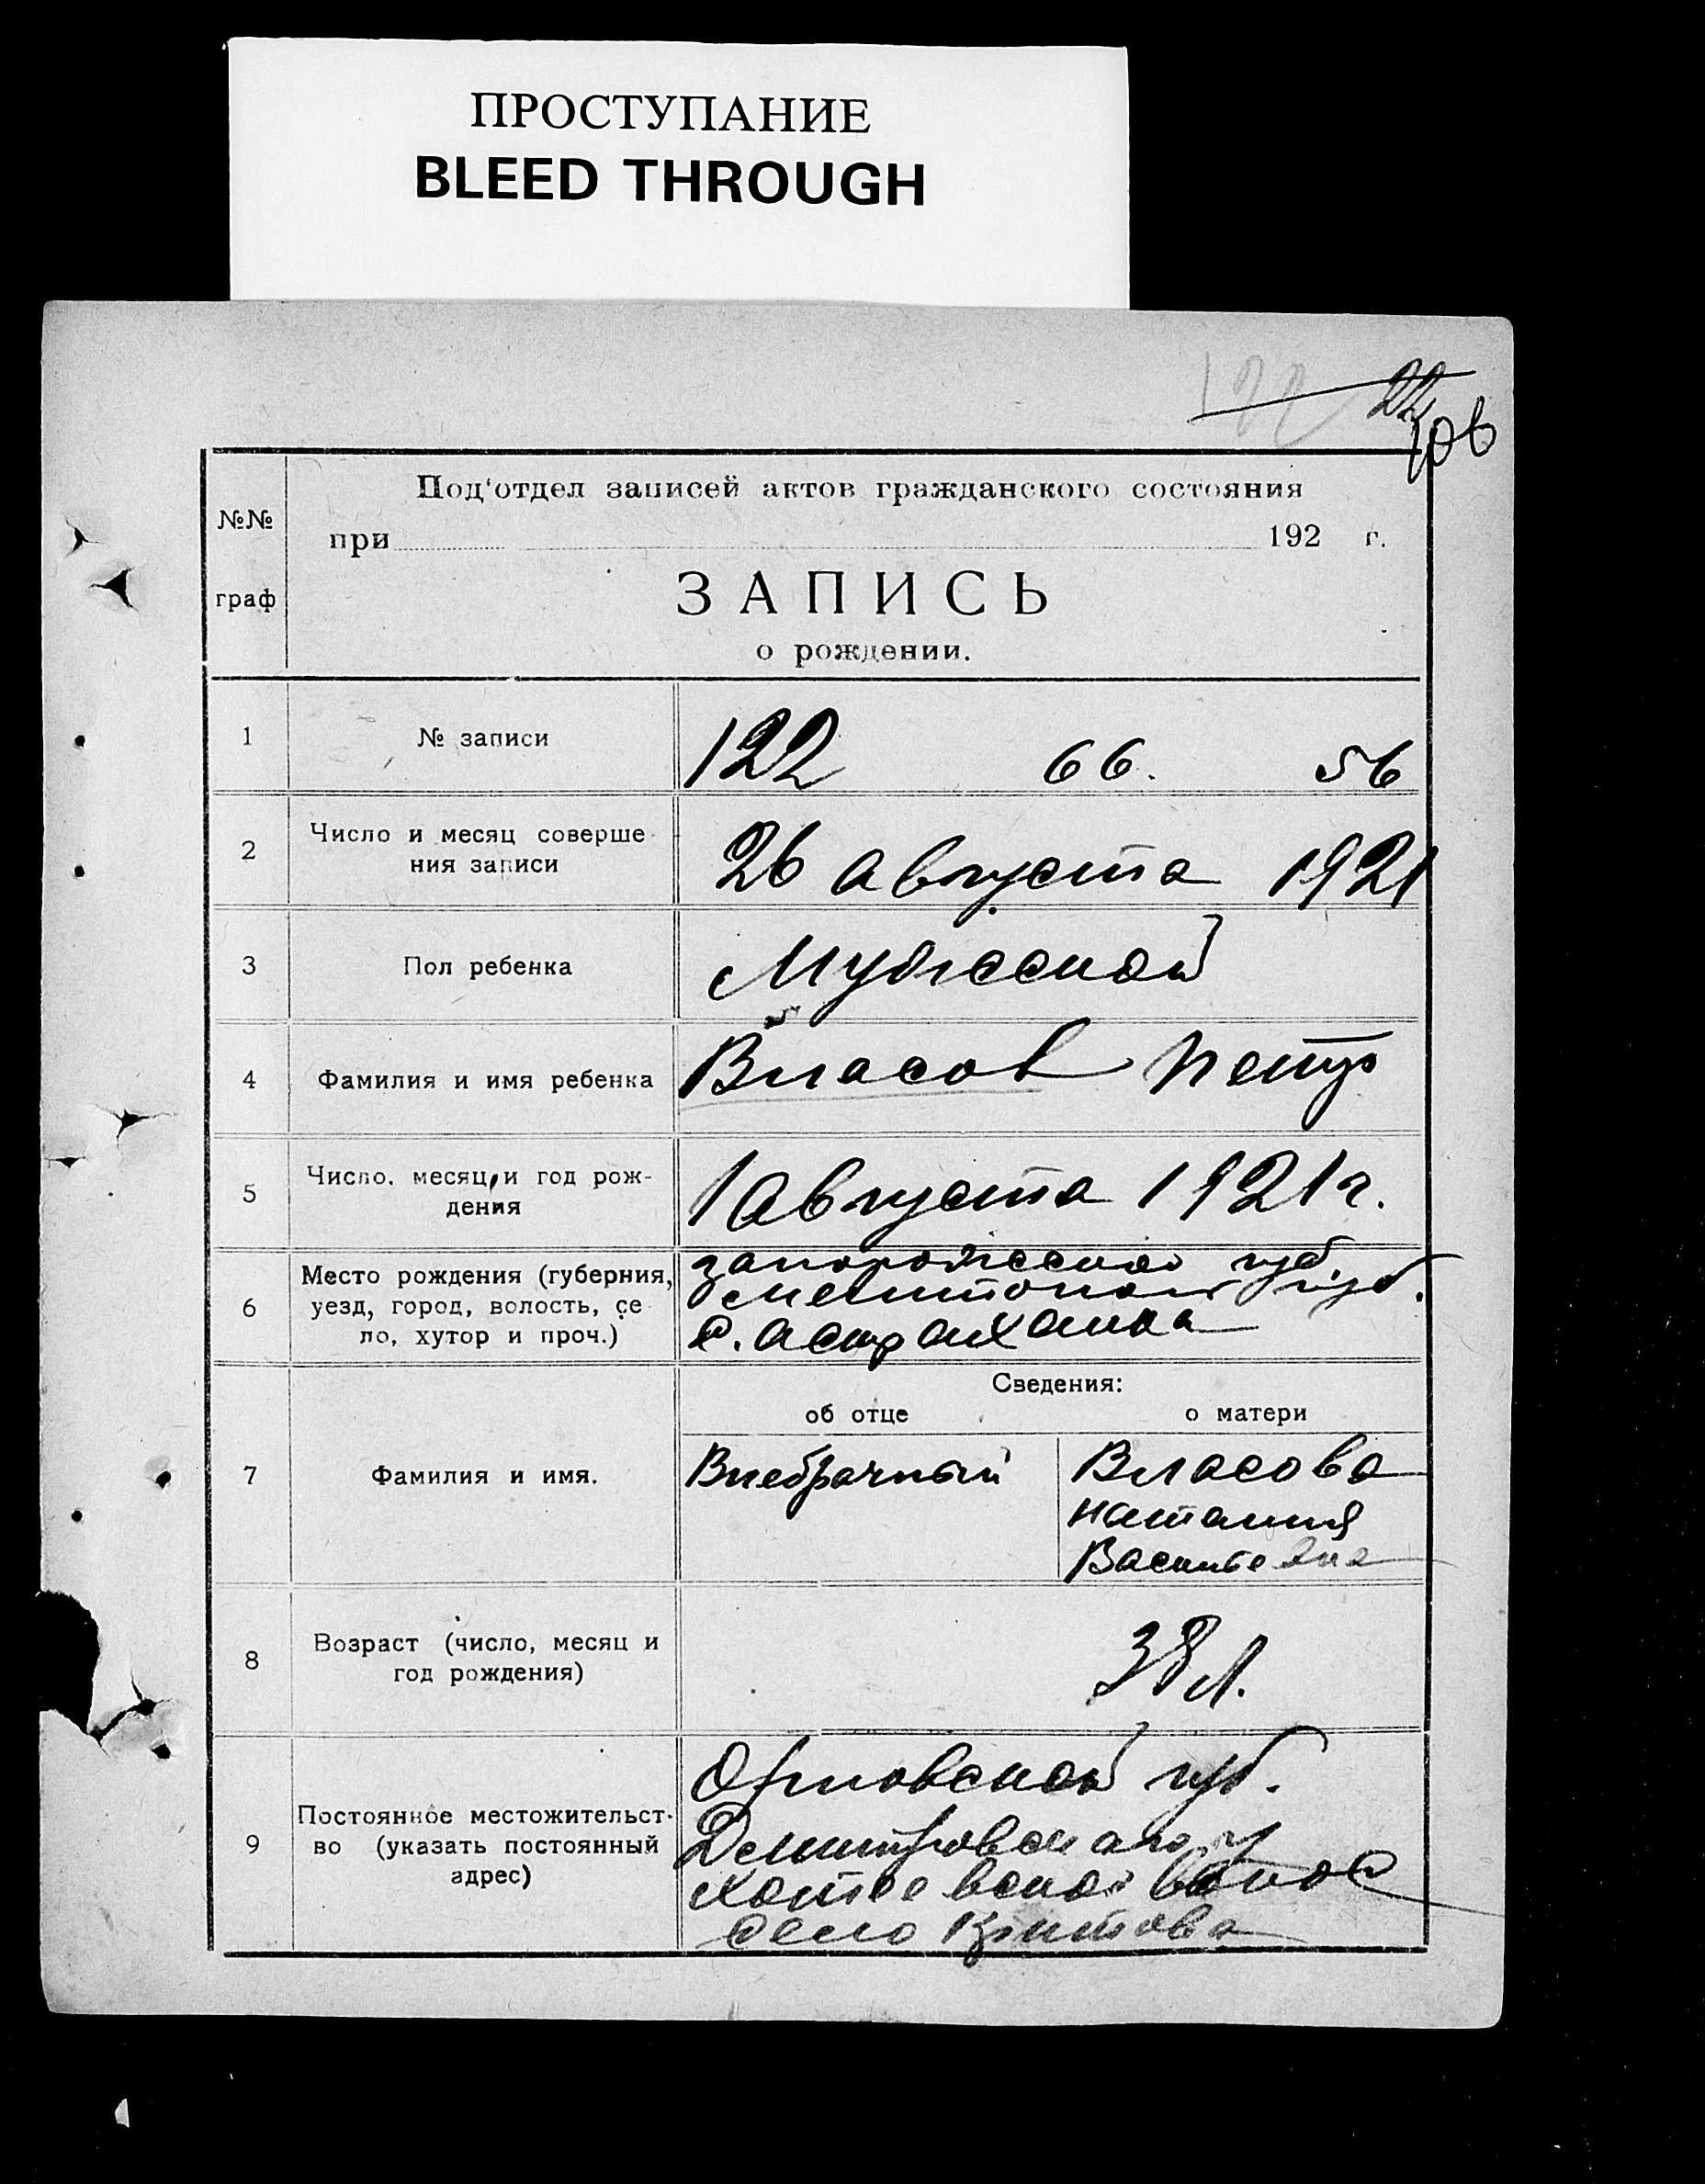 ПРОСТУПАНИЕ
BLEED THROUGH
122 22
106
Под'отдел записей актов гражданского состояния
№№
при 192 г.
граф
ЗАПИСЬ
о рождении.
1 № записи 122 66. 56
2 Число и месяц соверше
ния записи
26 августа 1921
3 Пол ребенка Мужской
4 Фамилия и имя ребенка Власов Петр
5 Число, месяц, и год рож-
дения
1 августа 1921 г.
6 Место рождения (губерния,
уезд, город, волость, се
ло, хутор и проч.)
Запорожской губ.
Мелитопол
с. Астраханка
Сведения:
об отце о матери
7 Фамилия и имя. Внебрачный Власова
Наталия
8 Возраст (число, месяц и
год рождения)
38 л.
9 Постоянное местожительст-
во (указать постоянный
адрес)
Орловской губ.
Дмитровск у
волос
село